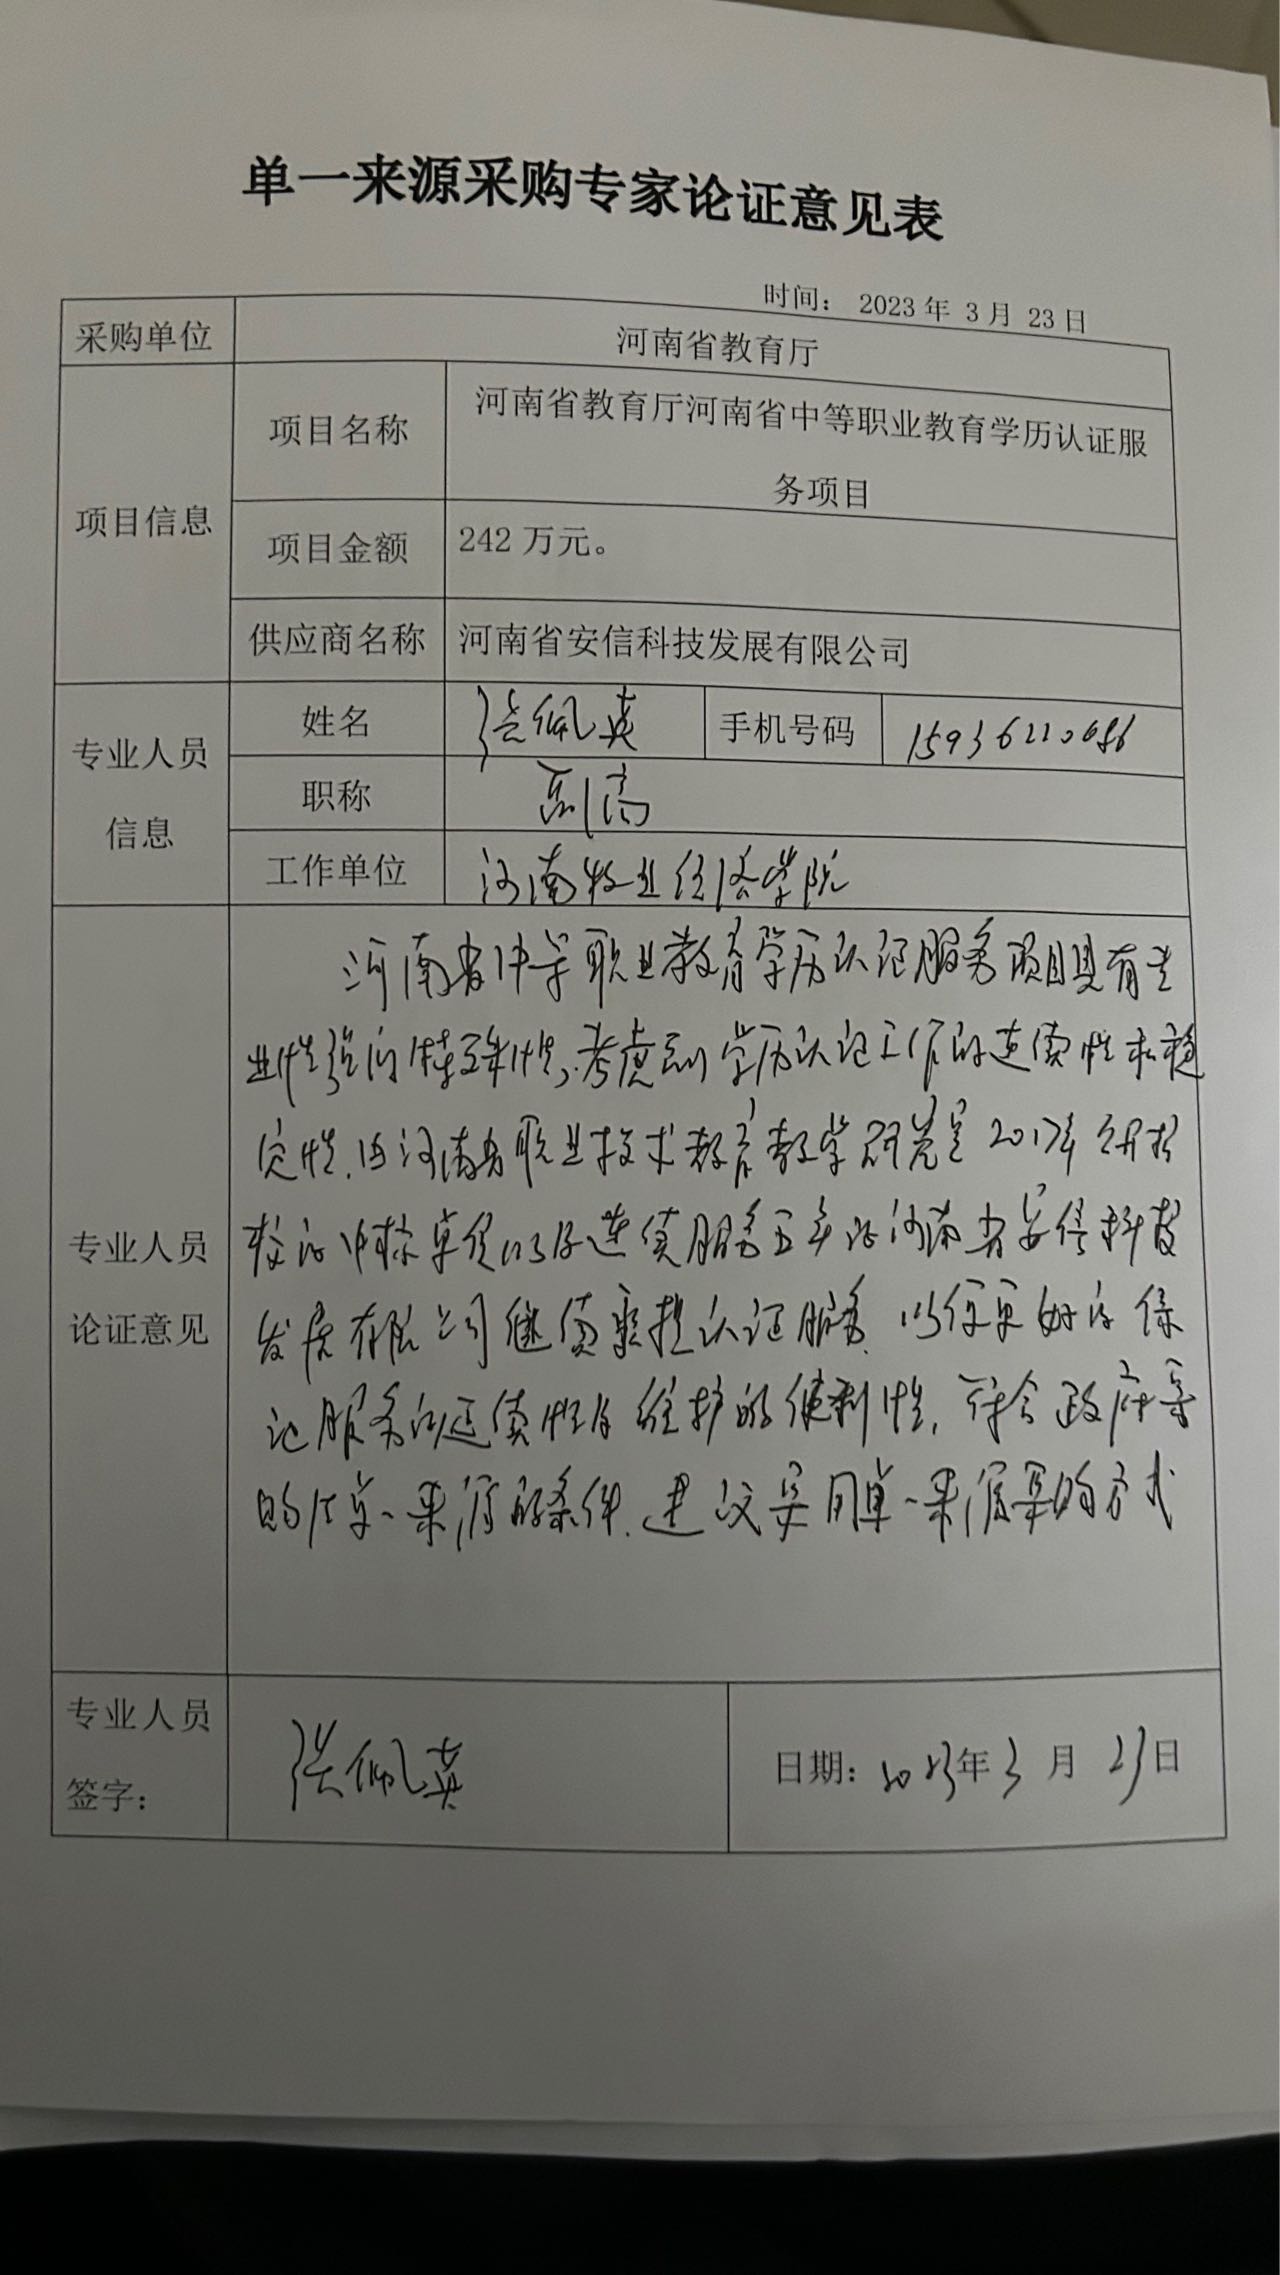 单一来源采购专家论证意见表
时间： 2023 年 3 月 23 日
采购单位
河南省教育厅
项目信息
项目名称
河南省教育厅河南省中等职业教育学历认证服
务项目
项目金额
242 万元。
供应商名称
河南省安信科技发展有限公司
专业人员
信息
姓名
张佩英
手机号码
15936210686
职称
副高
工作单位
河南牧业经济学院
专业人员
论证意见
河南省中等职业教育学历认证服务项目具有专
业性强的特殊性，考虑到学历认证工作的连续性和稳
定性，由河南省职业技术教育教学研究室2017年公开招
标的中标单位以及连续服务五年的河南省安信科技
发展有限公司继续承担认证服务，以便更好的保
证服务的延续性及维护的便利性，符合政府采
购法单一来源的条件，建议采用单一来源采购方式
专业人员
签字：
张佩英
日期：2023年3月23日